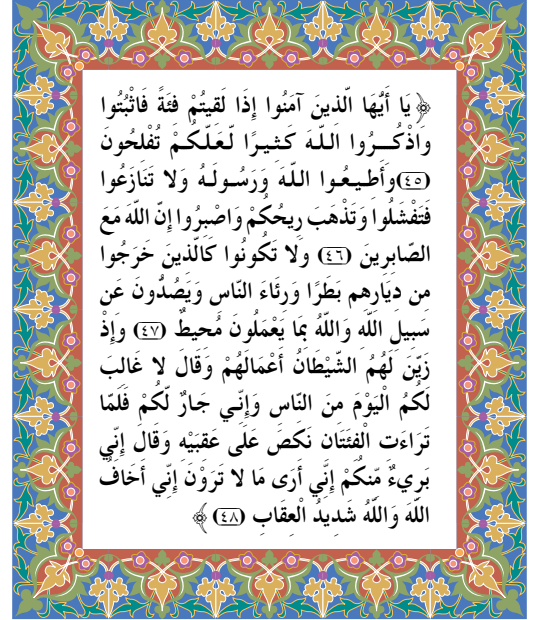 ﴿ يَا أَيُّهَا الَّذِينَ آمَنُوا إِذَا لَقِيتُمْ فِئَةً فَاثْبُتُوا
وَاذْكُــرُوا اللَّـهَ كَـثِـيـرًا لَّعَلَّـكُـمْ تُفْلِحُونَ
(٤٥) وَأَطِـيعُـوا اللَّهَ وَرَسُـولَـهُ وَلا تَنَازَعُوا
فَتَفْشَلُوا وَتَذْهَبَ رِيحُكُمْ وَاصْبِرُوا إِنَّ اللَّهَ مَعَ
الصَّابِرِينَ (٤٦) وَلا تَكُونُوا كَالَّذِينَ خَرَجُوا
مِن دِيَارِهِم بَطَرًا وَرِئَاءَ النَّاسِ وَيَصُدُّونَ عَن
سَبِيلِ اللَّهِ وَاللَّهُ بِمَا يَعْمَلُونَ مُحِيطٌ (٤٧) وَإِذْ
زَيَّنَ لَهُمُ الشَّيْطَانُ أَعْمَالَهُمْ وَقَالَ لا غَالِبَ
لَكُمُ الْيَوْمَ مِنَ النَّاسِ وَإِنِّـي جَـارٌ لَّكُمْ فَلَمَّا
تَرَاءَتِ الْفِئَتَانِ نَكَصَ عَلَى عَقِبَيْهِ وَقَالَ إِنِّي
بَرِيءٌ مِّنكُمْ إِنِّي أَرَى مَا لا تَرَوْنَ إِنِّي أَخَافُ
اللَّهَ وَاللَّهُ شَدِيدُ الْعِقَابِ (٤٨) ﴾